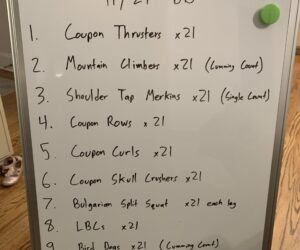 1. Coupon Thrusters x21
2. Mountain Climbers x21 (Cumming Count)
3. Shoulder Tap Merkins x21 (Single Count)
4. Coupon Rows x21
5. Coupon Curls x21
6. Coupon Skull Crushers x21
7. Bulgarian Split Squat x21 each leg
8. LBCs x21
9. Bird Dogs x21 (Cumming Count)